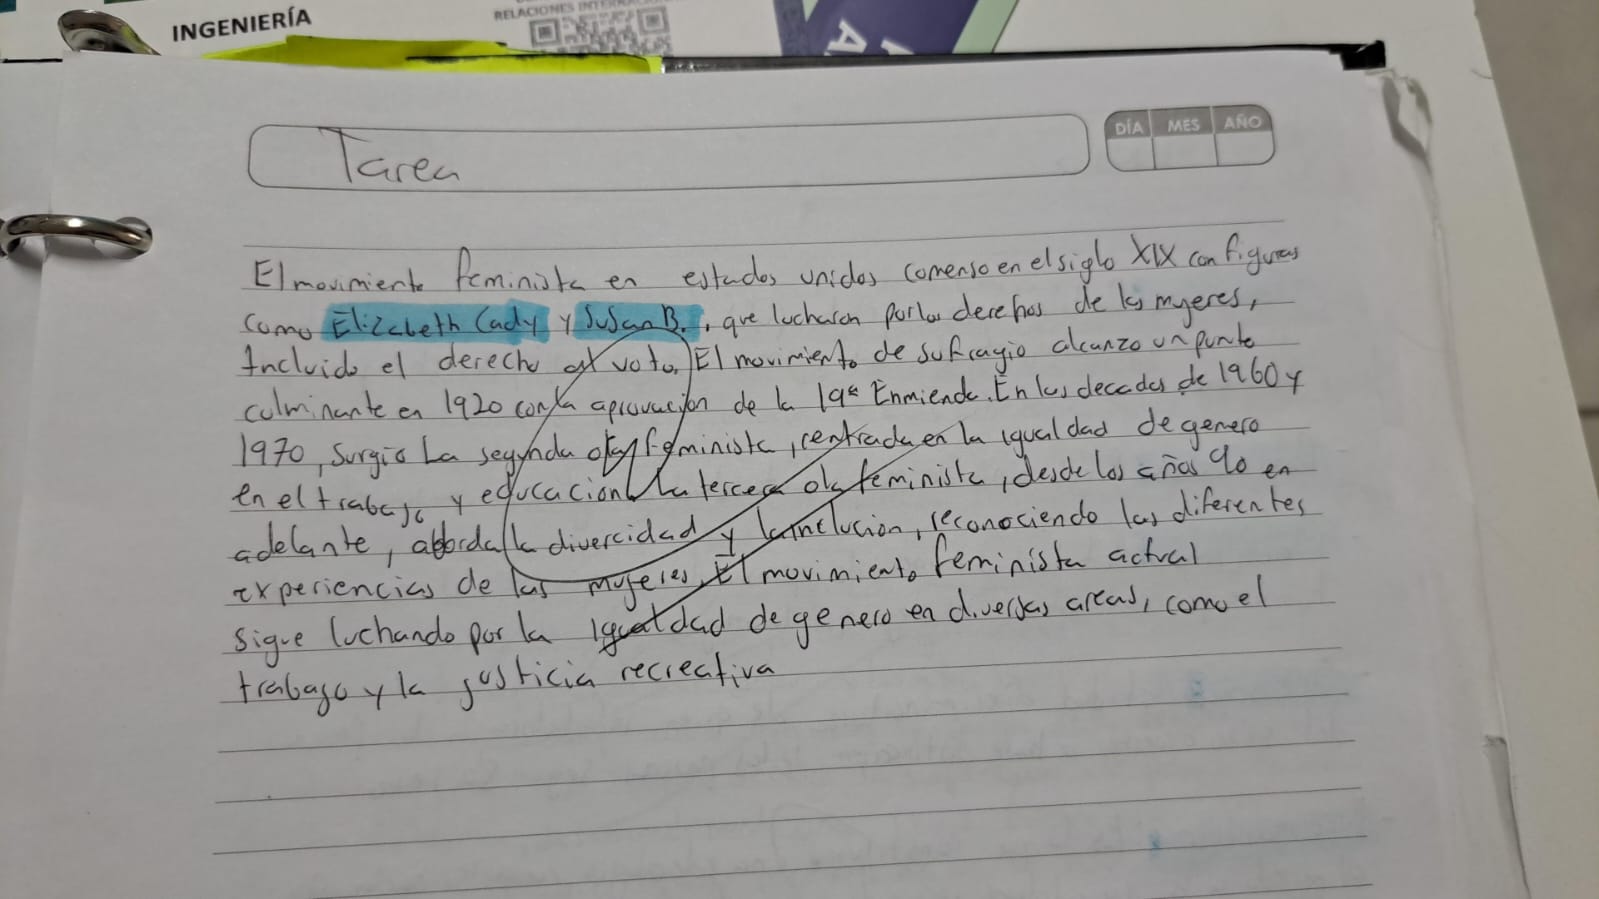 INGENIERÍA
RELACIONES
Tarea
DÍA MES AÑO
El movimiento feminista en estados unidos comenso en el siglo XIX con figuras
como Elizabeth Cady y Susan B., que lucharon por los derechos de las mujeres,
Incluido el derecho al voto. El movimiento de sufragio alcanzo un punto
culminante en 1920 con la aprovación de la 19ª Enmienda. En las decadas de 1960 y
1970, Surgió La segunda ola feminista, centrada en la igualdad de genero
en el trabajo y educacion. La tercera ola feminista, desde los años 90 en
adelante, aborda la divercidad y la inclución, reconociendo las diferentes
experiencias de las mujeres. El movimiento feminista actual
sigue luchando por la igualdad de genero en diversas areas, como el
trabajo y la justicia recreativa